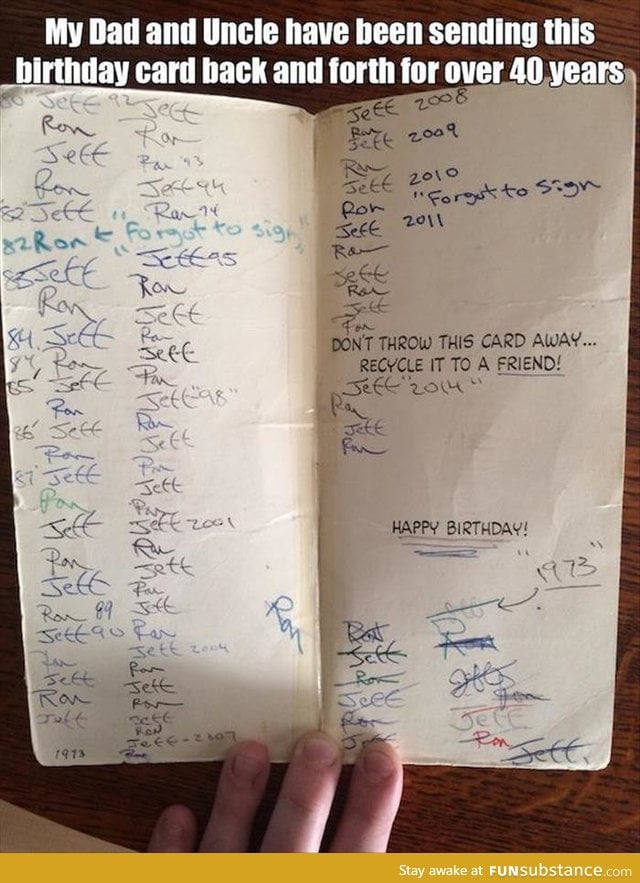 My Dad and Uncle have been sending this
birthday card back and forth for over 40 years
80" Jeff
Ron
Jeff
Ron
82 Jeff
82 Ron ← "Forgot to sign"
83 Jeff
Ron
84. Jeff
84' Ron
85' Jeff
Ron
86' Jeff
Ron
87' Jeff
Ron
Jeff
Ron
Jeff
Ron 89
Jeff 90
Ron
Jeff
Ron
Jeff
1973
92 Jeff
Ron
Ron '93
Jeff 94
Ron 94
Jeff 95
Ron
Jeff
Ron
Jeff
Ron
Jeff "98"
Ron
Jeff
Ron
Jeff
Ron
Jeff 2001
Ron
Jeff
Ron
Jeff
Ron
Jeff 2004
Ron
Jeff
Ron
Jeff
Ron
Jeff - 2007
Ron
Ron
Jeff 2008
Ron
Jeff 2009
Ron
Jeff 2010
Ron "Forgot to sign
Jeff 2011
Ron
Jeff
Ron
Jeff
Ron
DON'T THROW THIS CARD AWAY...
RECYCLE IT TO A FRIEND!
Jeff "2014"
Ron
Jeff
Ron
HAPPY BIRTHDAY!
"1973"
Ron
Jeff
Ron
Jeff
Ron
Jeff
Ron
Jeff
Ron
Jeff
Ron
Jeff.
Stay awake at FUNsubstance.com